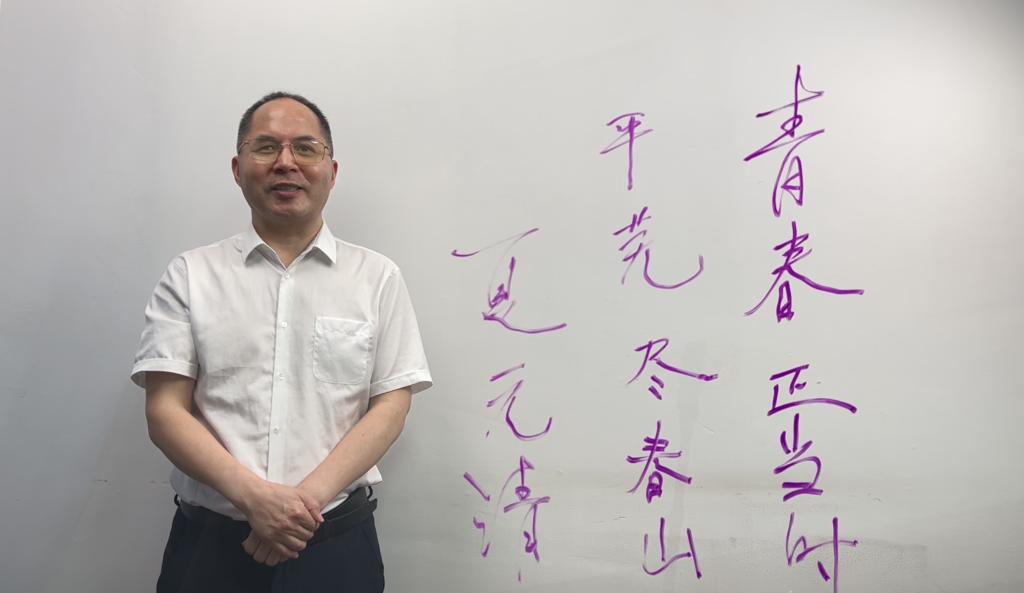 青春正当时
平芜尽春山
夏元清